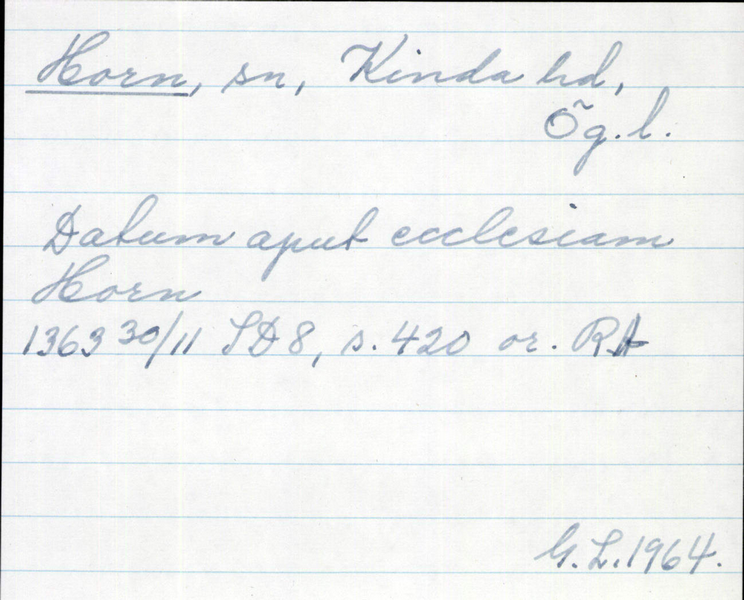 Horn, sn, Kinda hd,
Ög.l.
Datum aput ecclesiam
Horn
1363 30/11 SD8, s. 420 or. RA
G.L.1964.